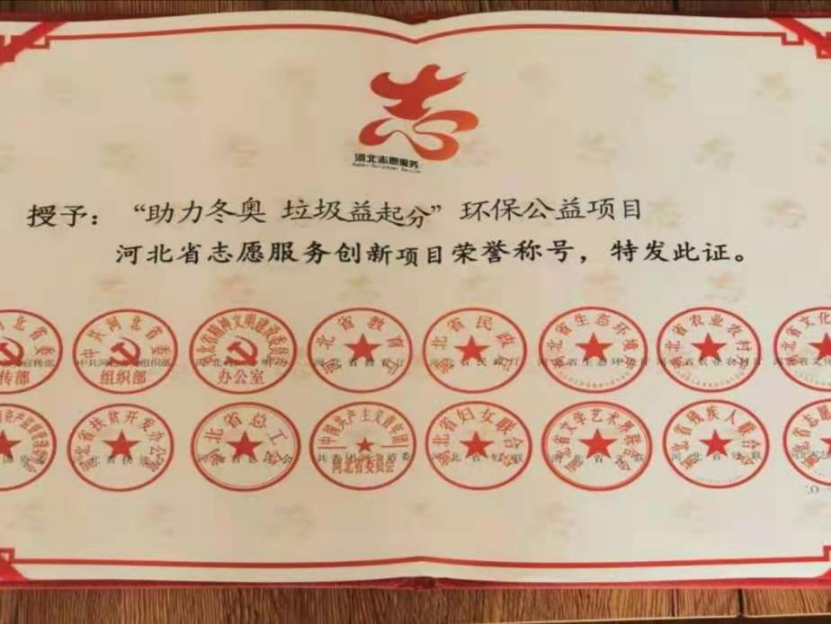 河北志愿服务
授予：“助力冬奥 垃圾益起分”环保公益项目
河北省志愿服务创新项目荣誉称号，特发此证。
河北省委
传部
中共河北省委
组织部
河北省精神文明建设委员会
办公室
河北省教育厅
河北省民政厅
河北省生态环境厅
河北省农业农村厅
河北省扶贫开发办公室
河北省总工会
中国共产主义青年团
河北省委员会
河北省妇女联合会
河北省文学艺术界联合会
河北省残疾人联合会